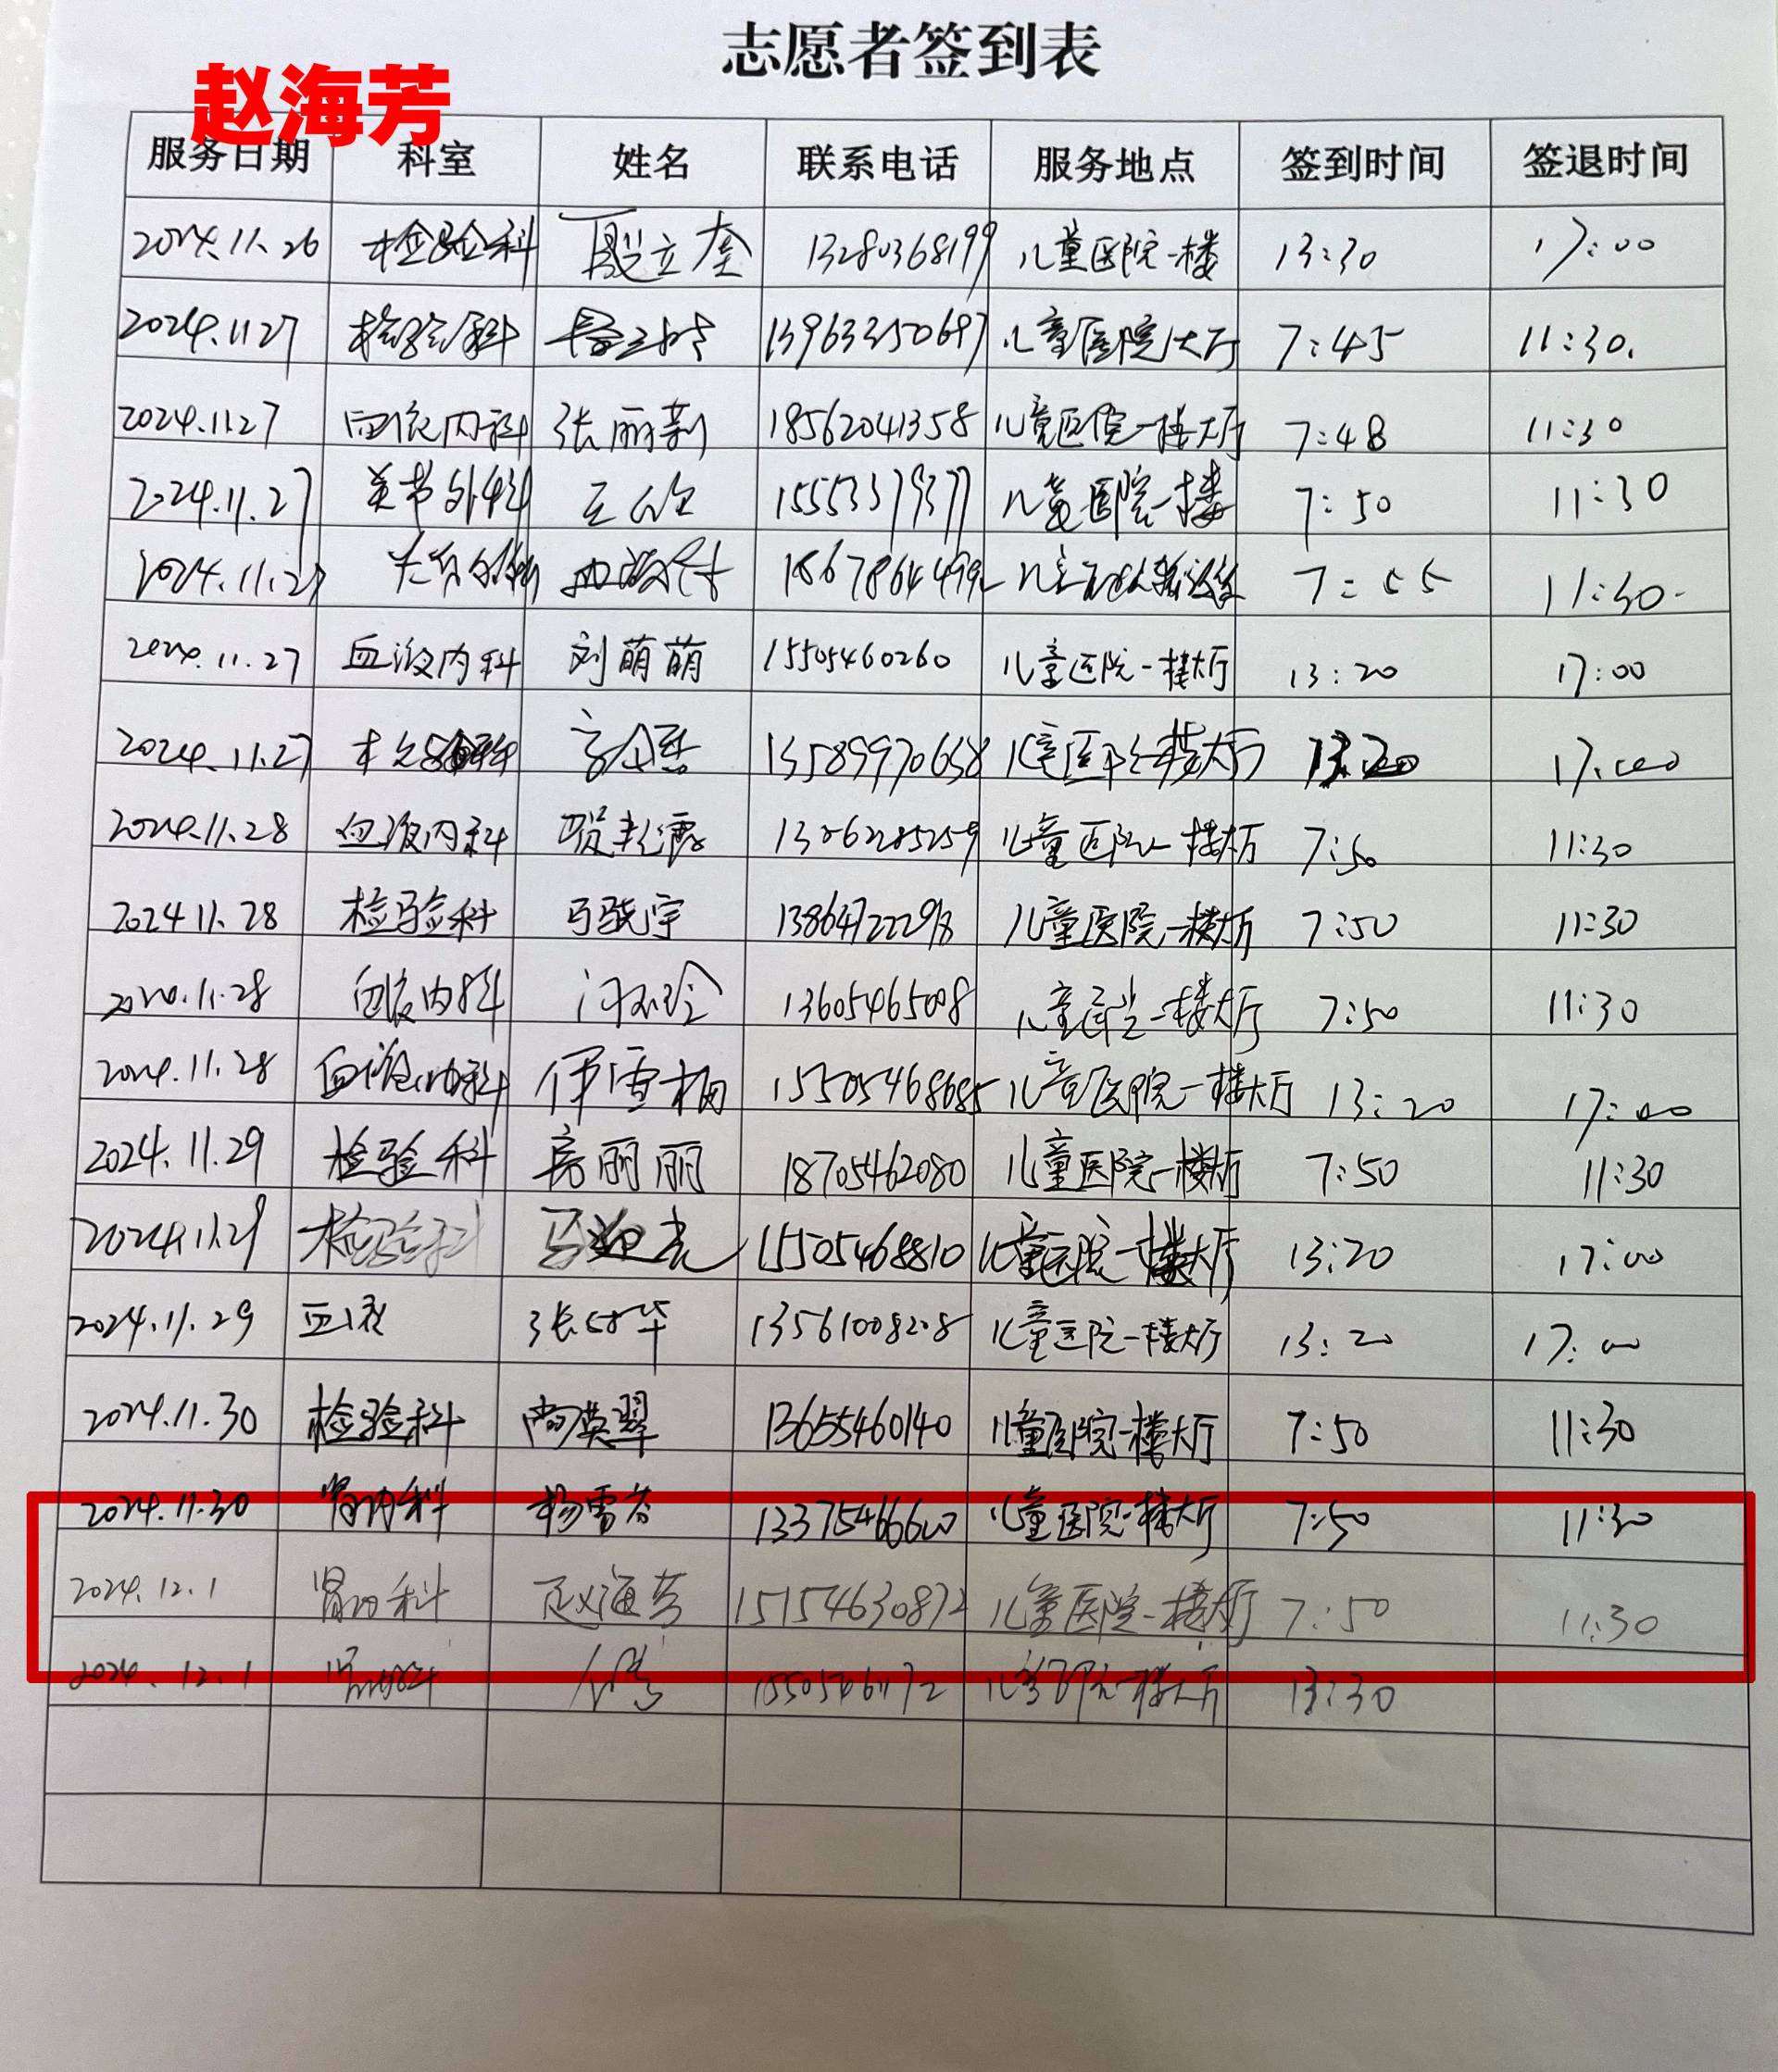 志愿者签到表
赵海芳
服务日期 科室 姓名 联系电话 服务地点 签到时间 签退时间
2024.11.26 检验科 聂立奎 13280368199 儿童医院一楼 13:30 17:00
2024.1127 检验科 13963350697 儿童医院大厅 7:45 11:30.
2024.11.27 血液内科 张丽莉 18562041358 儿童医院一楼大厅 7:48 11:30
2024.11.27 关节外科 15553379377 儿童医院一楼 7:50 11:30
2024.11.27 7:55 11:30
2024.11.27 血液内科 刘萌萌 15505460260 儿童医院一楼大厅 13:20 17:00
2024.11.27 13589970658 儿童医院一楼大厅 13:20 17:00
2024.11.28 血液内科 13062285259 儿童医院一楼大厅 7:50 11:30
2024 11.28 检验科 儿童医院一楼大厅 7:50 11:30
2024.11.28 血液内科 13605465098 一楼大厅 7:50 11:30
2024.11.28 血液内科 伊雪梅 15505468685 儿童医院一楼大厅 13:20 17:00
2024.11.29 检验科 房丽丽 18705462080 儿童医院一楼大厅 7:50 11:30
2024.11.29 检验科 马迎光 15505468810 儿童医院一楼大厅 13:20 17:00
2024.11.29 血液 13561008208 儿童医院一楼大厅 13:20 17:00
2024.11.30 检验科 尚英翠 13655460140 儿童医院一楼大厅 7:50 11:30
2024.11.30 肾内科 杨雪芬 13375466600 儿童医院一楼大厅 7:50 11:30
2024.12.1 肾内科 赵海芳 15154630872 儿童医院一楼大厅 7:50 11:30
2024.12.1 肾内科 15505461172 儿童医院一楼大厅 13:30